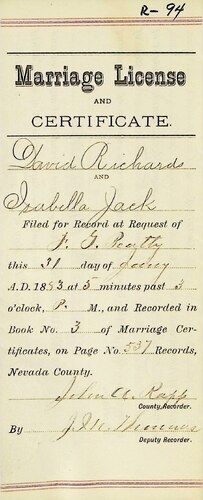 R-94
Marriage License
AND
CERTIFICATE.
David Richards
AND
Isabella Jack
Filed for Record at Request of
F. G.
this 31 day of
A.D. 1893 at 5 minutes past 3
o'clock, P. M., and Recorded in
Book No. 3 of Marriage Cer-
tificates, on Page No. 537 Records,
Nevada County.
John A. Rapp
County Recorder.
By
Deputy Recorder.